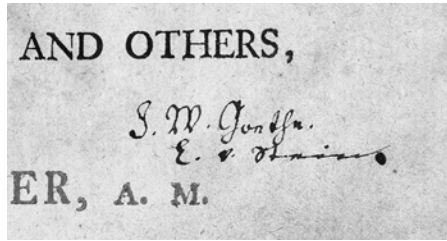 AND OTHERS,
J. W. Goethe.
C. v. Stein.
ER, A. M.